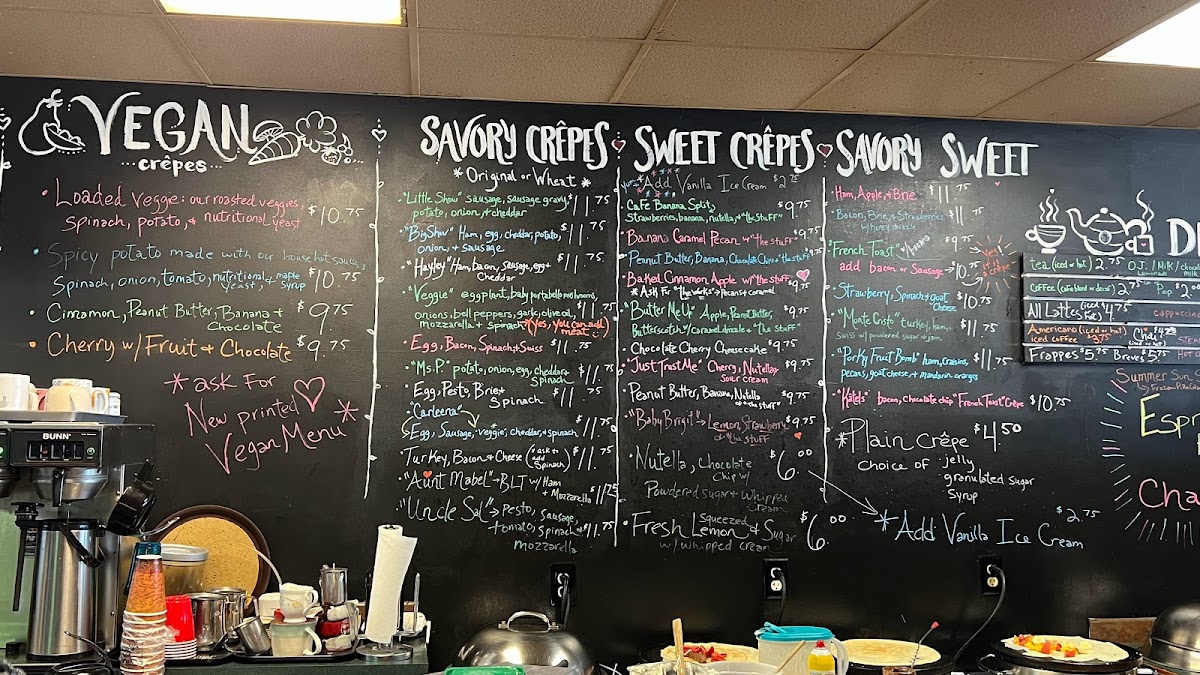 VEGAN
crêpes
• Loaded Veggie: our roasted veggies,
spinach, potato, + nutritional yeast
$10.75
• Spicy potato made with our house hot sauce,
Spinach, onion, tomato, nutritional yeast, maple syrup
$10.75
• Cinnamon, Peanut Butter, Banana +
Chocolate
$9.75
• Cherry w/ Fruit + Chocolate
$9.75
*ask For
New printed
Vegan Menu *
SAVORY CRÊPES
*Original or Wheat*
"Little Show" sausage, sausage gravy,
potato, onion, + cheddar
$11.75
"Big Show" Ham, egg, cheddar, potato,
onion, + sausage
$11.75
"Hayley" Ham, bacon, Sausage, egg +
Cheddar
$11.75
"Veggie" eggplant, baby portabello mushrooms,
onions, bell peppers, garlic, olive oil,
mozzarella + Spinach
$11.75
(Yes, you can add meat)
Egg, Bacon, Spinach + Swiss $11.75
"Ms. P" potato, onion, egg, cheddar +
Spinach
$11.75
Egg, Pesto, Brie +
Spinach
$11.75
"Carleena"
Egg, Sausage, veggie, cheddar, + spinach
$11.75
Turkey, Bacon + Cheese (*ask to add Spinach) $11.75
"Aunt Mabel" → BLT w/ Ham
+ Mozzarella $11.75
"Uncle Sal" → Pesto, sausage,
tomato, spinach +
mozzarella
$11.75
SWEET CRÊPES
Add Vanilla Ice Cream $2.75
Cafe Banana Split,
Strawberries, banana, nutella, + "the stuff"
$9.75
Banana Caramel Pecan w/ "the stuff" $9.75
Peanut Butter, Banana, Chocolate Chip + "the stuff" $9.75
Baked Cinnamon Apple w/ "the stuff"
* ASK For "The works" → Pecans + caramel
$9.75
"Butter Me Up" Apple, Peanut Butter,
Butterscotch/caramel drizzle + "the stuff"
$9.75
Chocolate Cherry Cheesecake $9.75
"Just Trust Me" Cherry, Nutella +
Sour cream
$9.75
Peanut Butter, Banana, Nutella
+ "the stuff"
$9.75
"Baby Brigit" → Lemon, Strawberry
+ "the stuff"
$9.75
Nutella, Chocolate
Chip w/
Powdered sugar + Whipped
Cream
$6.00
Fresh Squeezed Lemon + Sugar
w/ whipped cream
$6.00
SAVORY SWEET
Ham, Apple, + Brie $11.75
Bacon, Brie, + Strawberries
w/ honey drizzle
$11.75
"French Toast" $9.75
add bacon or Sausage → $10.75
Strawberry, Spinach + goat
Cheese
$10.75
"Monte Cristo" turkey, ham,
Swiss w/ powdered sugar + jam
$11.75
"Porky Fruit Bomb" ham, craisins,
pecans, goat cheese, + Mandarin oranges
$11.75
"Kate's" bacon, chocolate chip "French Toast" Crêpe $10.75
*Plain Crêpe $4.50
choice of jelly
granulated sugar
Syrup
*Add Vanilla Ice Cream $2.75
tea (iced or hot) 2.75
O.J. / Milk /
Coffee 2.75
Pop $2.00
All Lattes $4.75
cappuccino
Americano (iced or hot)
iced coffee $3.75
Chai
Frappes $5.75
Breve $5.75
Summer Sun
BUNN